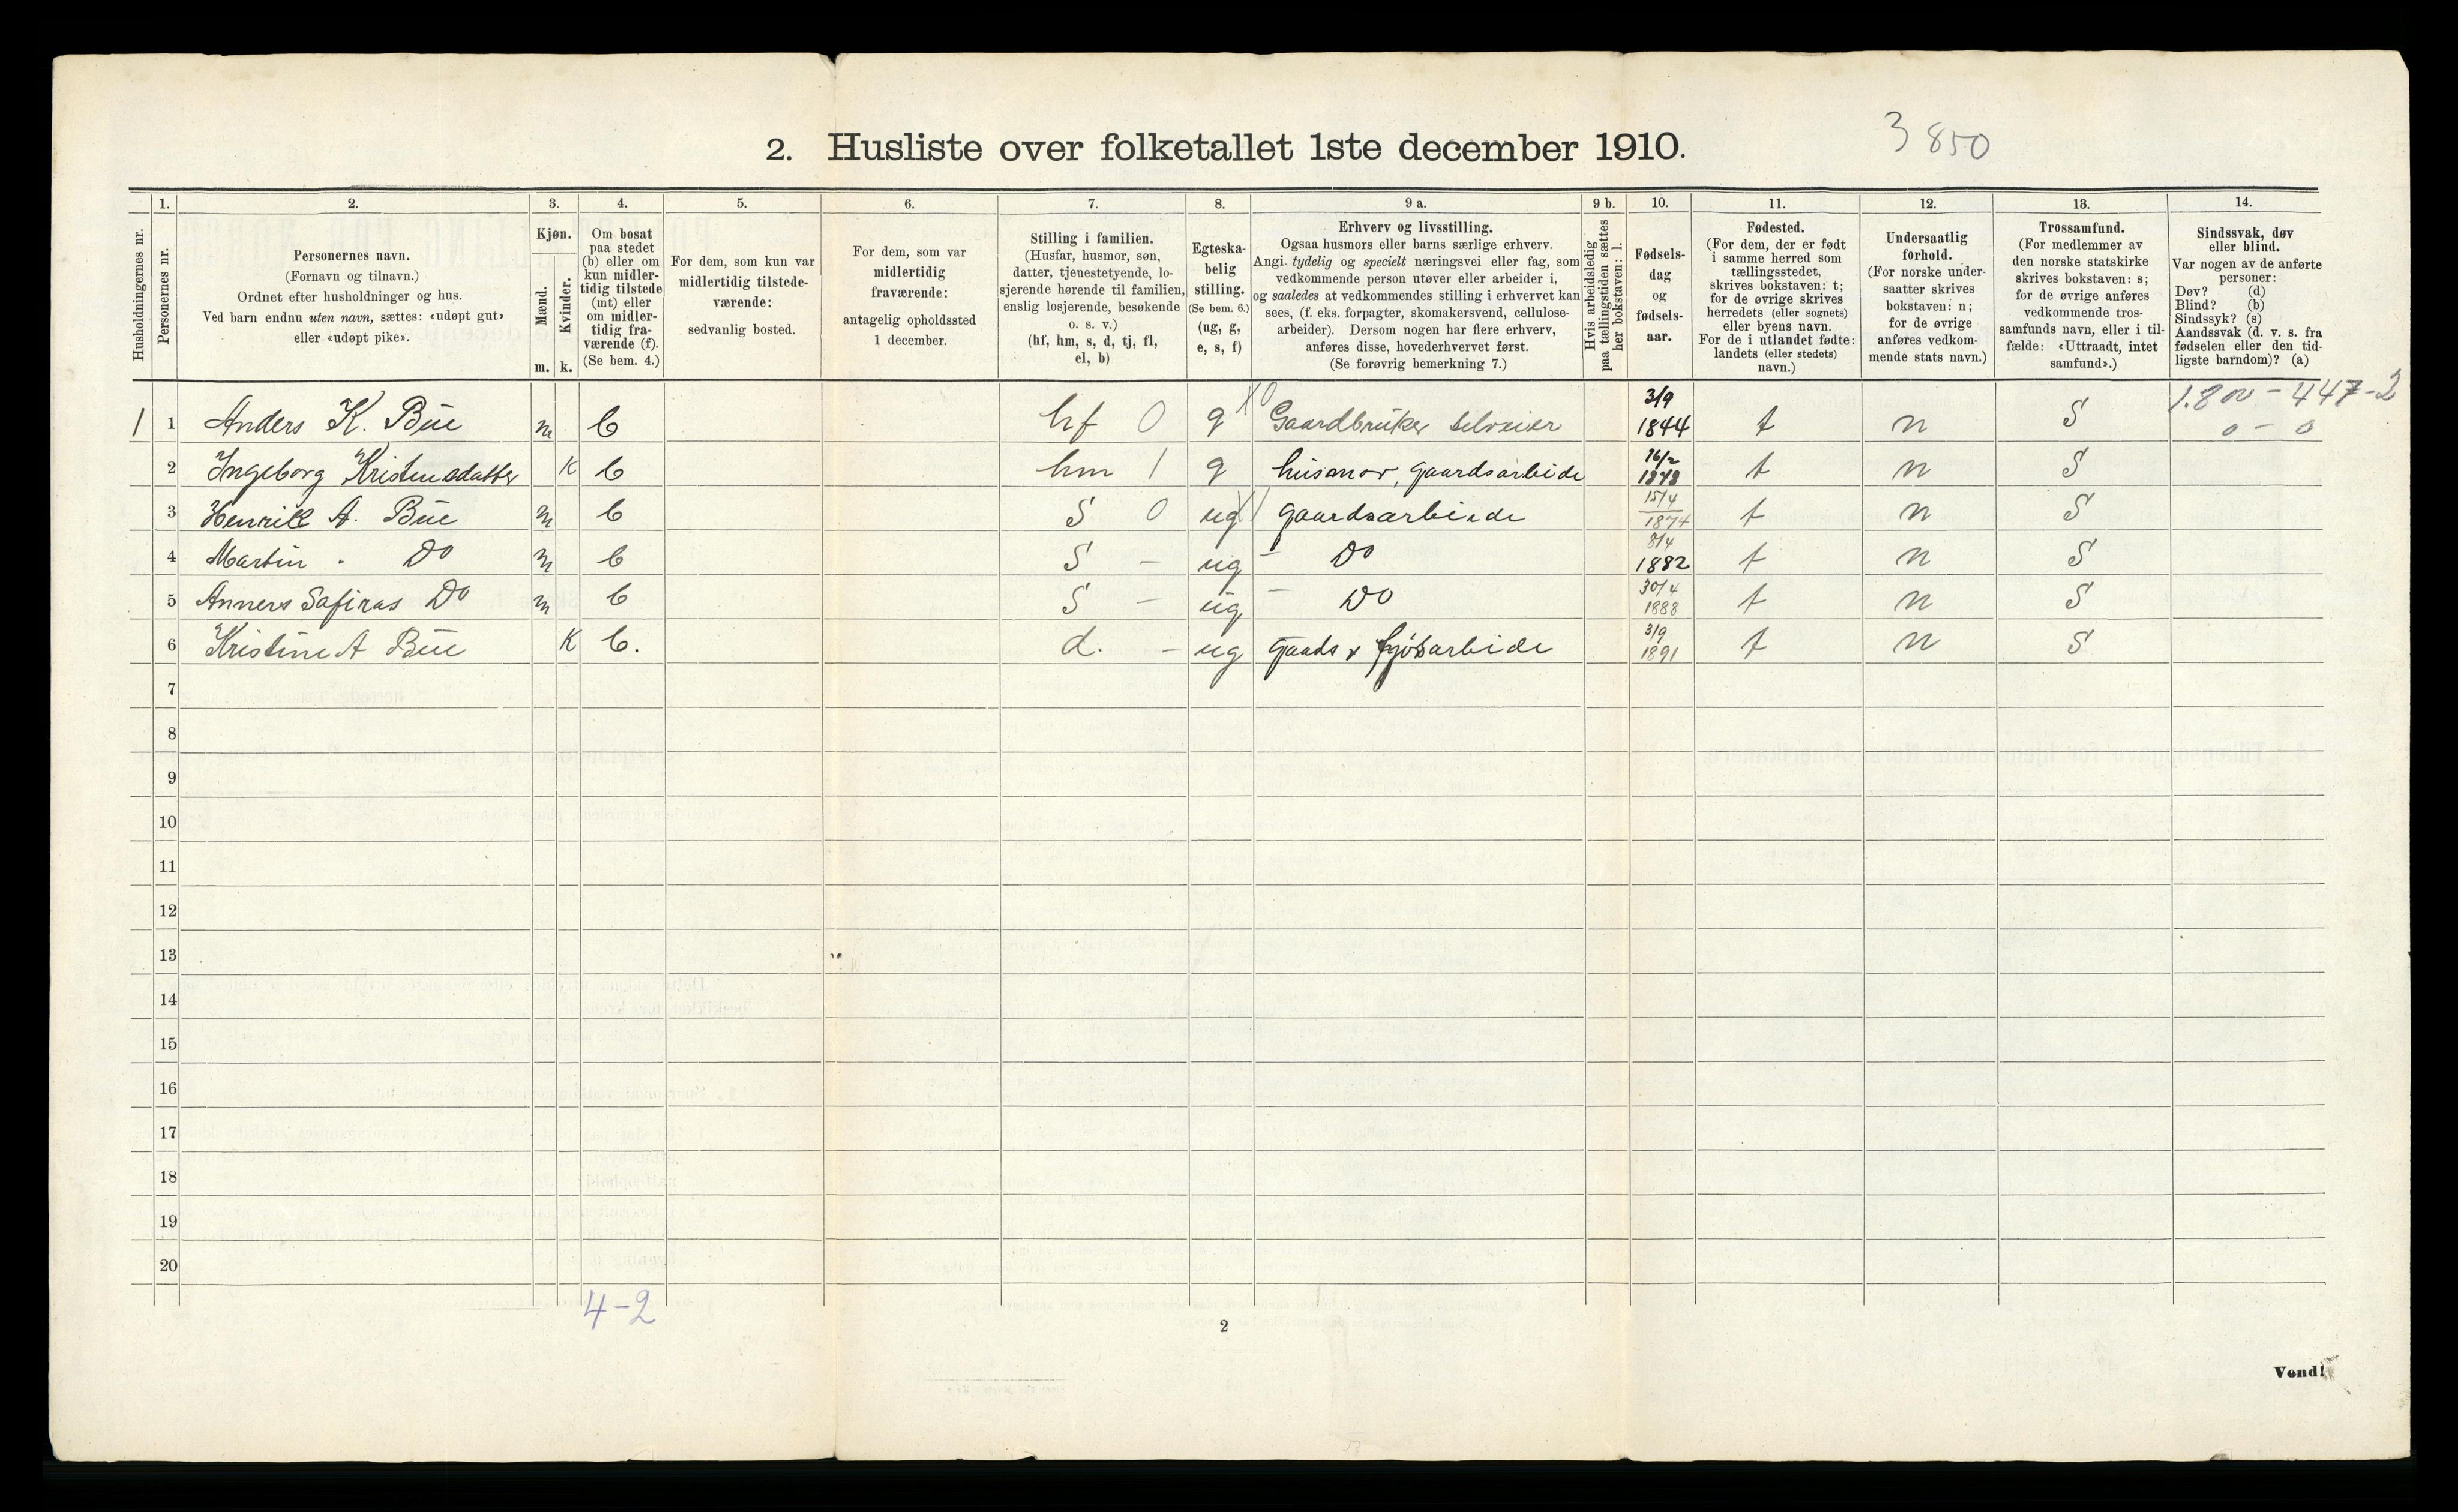 3 850
2. Husliste over folketallet 1ste december 1910.
Husholdningernes nr.
1.
Personernes nr.
2.
Personernes navn.
(Fornavn og tilnavn.)
Ordnet efter husholdninger og hus.
Ved barn endnu uten navn, sættes: «udøpt gut»
eller «udøpt pike».
3.
Kjøn.
Mænd. Kvinder.
m. k.
4.
Om bosat
paa stedet
(b) eller om
kun midler-
tidig tilstede
(mt) eller
om midler-
tidig fra-
værende (f).
(Se bem. 4.)
5.
For dem, som kun var
midlertidig tilstede-
værende:
sedvanlig bosted.
6.
For dem, som var
midlertidig
fraværende:
antagelig opholdssted
1 december.
7.
Stilling i familien.
(Husfar, husmor, søn,
datter, tjenestetyende, lo-
sjerende hørende til familien,
enslig losjerende, besøkende
o. s. v.)
(hf, hm, s, d, tj, fl,
el, b)
8.
Egteska-
belig
stilling.
(Se bem. 6.)
(ug, g,
e, s, f)
9 a.
Erhverv og livsstilling.
Ogsaa husmors eller barns særlige erhverv.
Angi tydelig og specielt næringsvei eller fag, som
vedkommende person utøver eller arbeider i,
og saaledes at vedkommendes stilling i erhvervet kan
sees, (f. eks. forpagter, skomakersvend, cellulose-
arbeider). Dersom nogen har flere erhverv,
anføres disse, hovederhvervet først.
(Se forøvrig bemerkning 7.)
9 b.
Hvis arbeidsledig
paa tællingstiden sættes
her bokstaven: l.
10.
Fødsels-
dag
og
fødsels-
aar.
11.
Fødested.
(For dem, der er født
i samme herred som
tællingsstedet,
skrives bokstaven: t;
for de øvrige skrives
herredets (eller sognets)
eller byens navn.
For de i utlandet fødte:
landets (eller stedets)
navn.)
12.
Undersaatlig
forhold.
(For norske under-
saatter skrives
bokstaven: n;
for de øvrige
anføres vedkom-
mende stats navn.)
13.
Trossamfund.
(For medlemmer av
den norske statskirke
skrives bokstaven: s;
for de øvrige anføres
vedkommende tros-
samfunds navn, eller i til-
fælde: «Uttraadt, intet
samfund».)
14.
Sindssvak, døv
eller blind.
Var nogen av de anførte
personer:
Døv? (d)
Blind? (b)
Sindssyk? (s)
Aandssvak (d. v. s. fra
fødselen eller den tid-
ligste barndom)? (a)
1.800 - 447-2
0 - 0
1 1 Anders K. Bue m b hf 0 g X0 Gaardbruker selveier 3/9 1844 t n S
2 Ingeborg Kristensdatter K b hm 1 g husmor, gaardsarbeide 16/2 1848 t n S
3 Henrik A. Bue m b S 0 ug X1 gaardsarbeide 15/4 1874 t n S
4 Martin - Do m b S - ug - Do 8/4 1882 t n S
5 Anners Safiras Do m b S - ug - Do 30/4 1888 t n S
6 Kristine A Bue K b. d. - ug gaards & fjøsarbeide 3/9 1891 t n S
7
8
9
10
11
12
13
14
15
16
17
18
19
20
4-2
2
Vend!